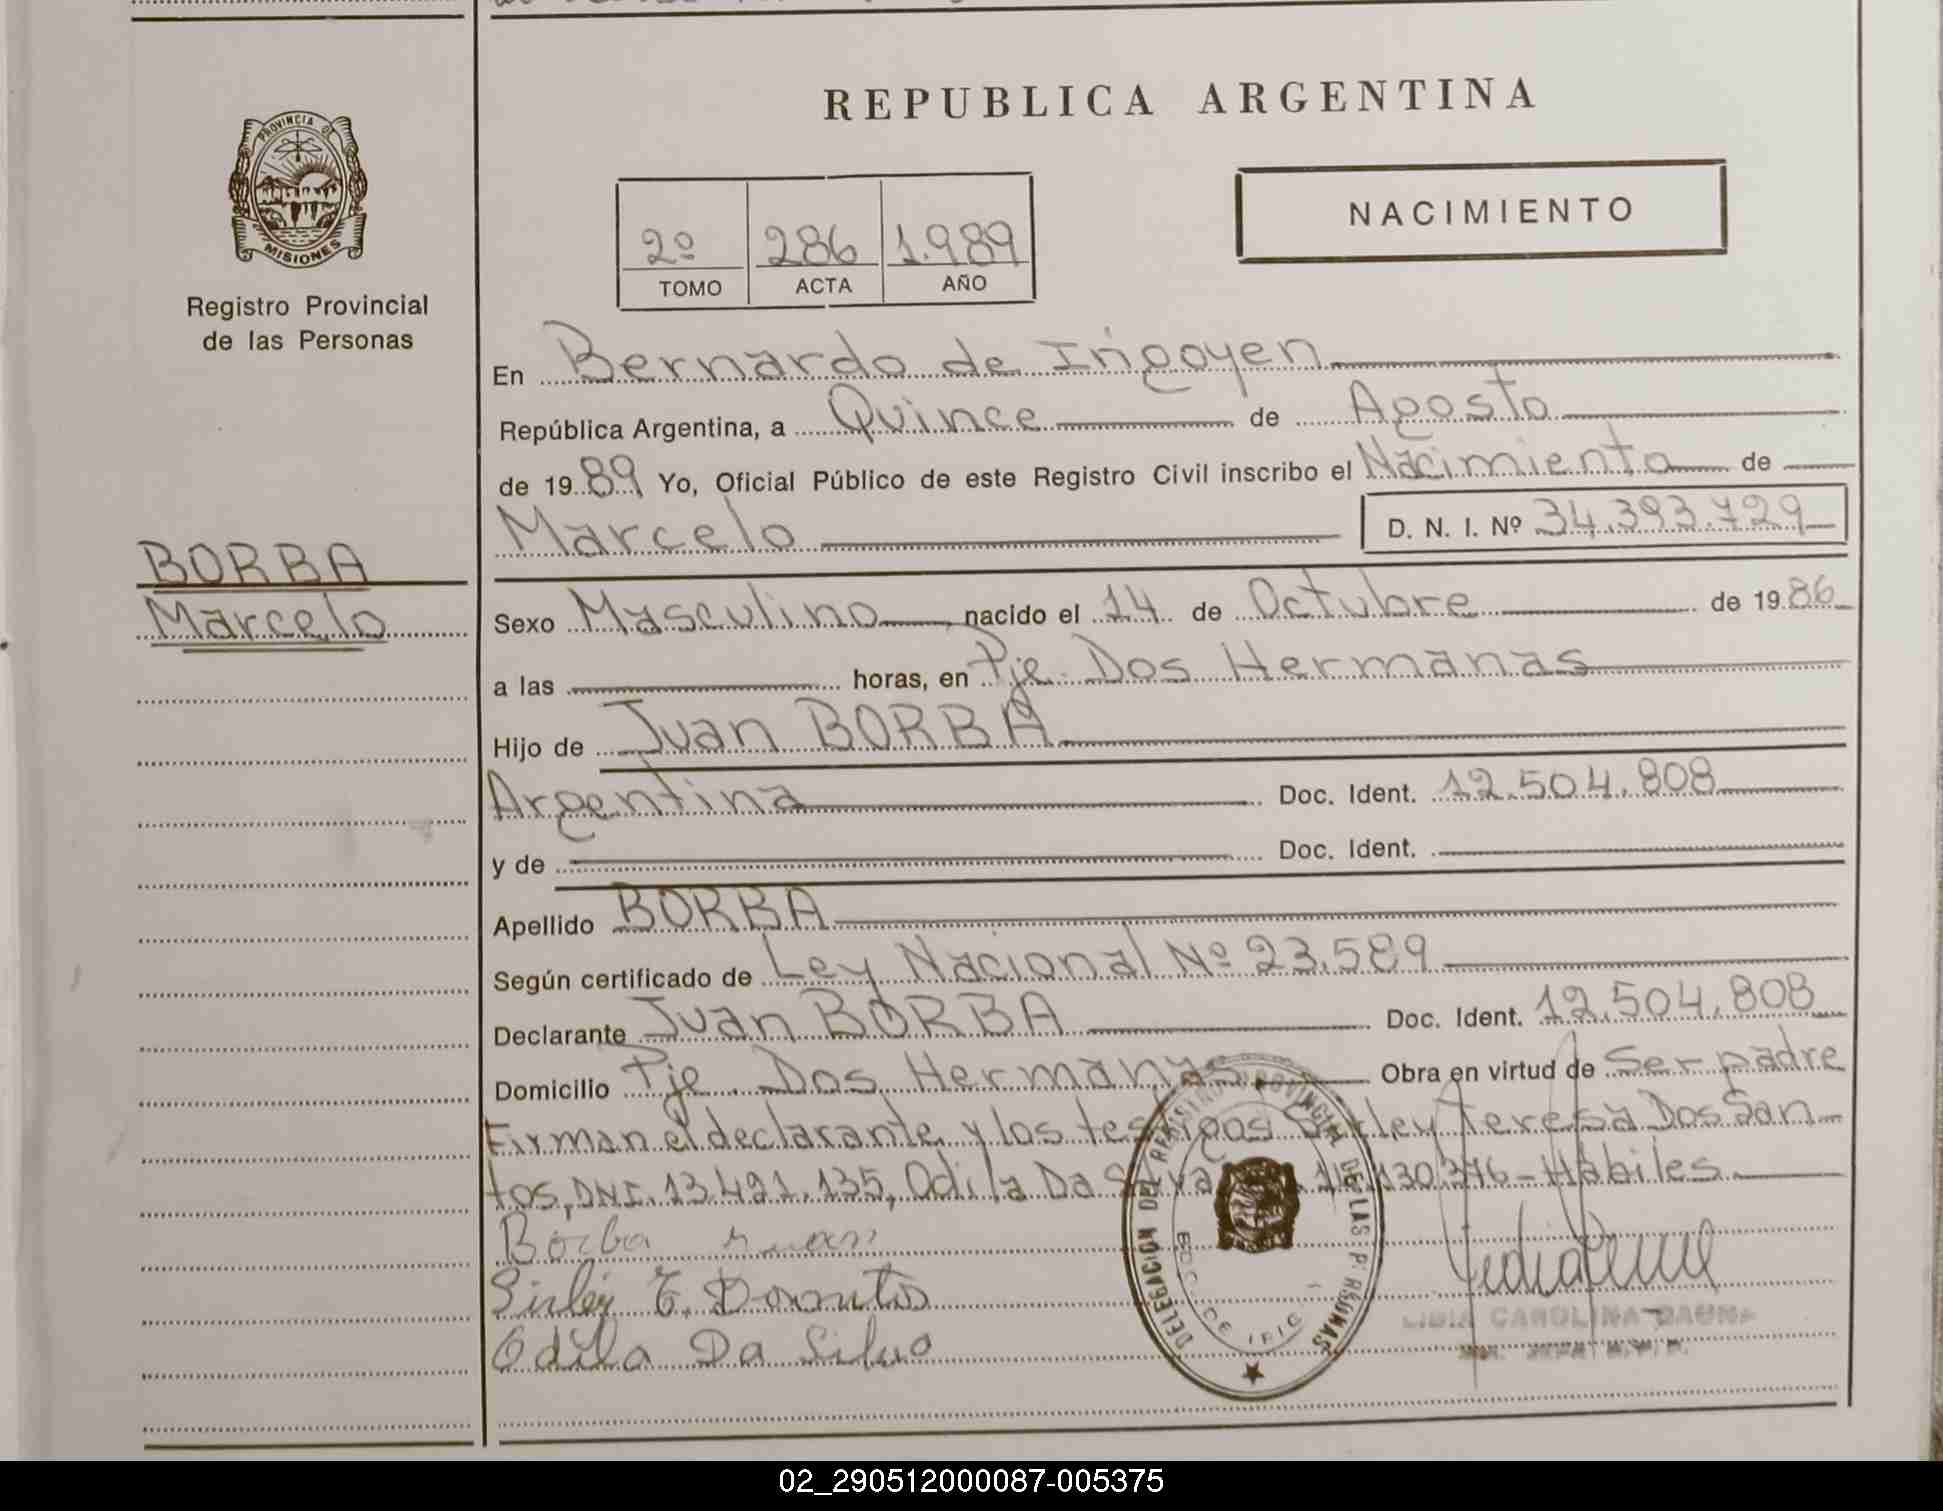 REPUBLICA ARGENTINA
PROVINCIA DE
MISIONES
Registro Provincial
de las Personas
NACIMIENTO
2º 286 1.989
TOMO ACTA AÑO
En Bernardo de Irigoyen
República Argentina, a Quince de Agosto
de 1989 Yo, Oficial Público de este Registro Civil inscribo el Nacimiento de
Marcelo D. N. I. Nº 34.393.729
BORBA
Marcelo
Sexo Masculino nacido el 14 de Octubre de 1986
a las horas, en Pje. Dos Hermanas
Hijo de Juan BORBA
Argentina Doc. Ident. 12.504.808
y de Doc. Ident.
Apellido BORBA
Según certificado de Ley Nacional Nº 23.589
Declarante Juan BORBA Doc. Ident. 12.504.808
Domicilio Pje. Dos Hermanas Obra en virtud de Ser padre
Firman el declarante y los testigos Sirley Teresa Dos San
tos, DNI. 13.421.135, Odila Da Silva 130.376 - Hábiles
Borba Juan
Sirley T. 
Odila Da Silva
DELEGACION DEL REGISTRO PROVINCIAL DE LAS PERSONAS
BDO. DE IRIG
CAROLINA
02_290512000087-005375